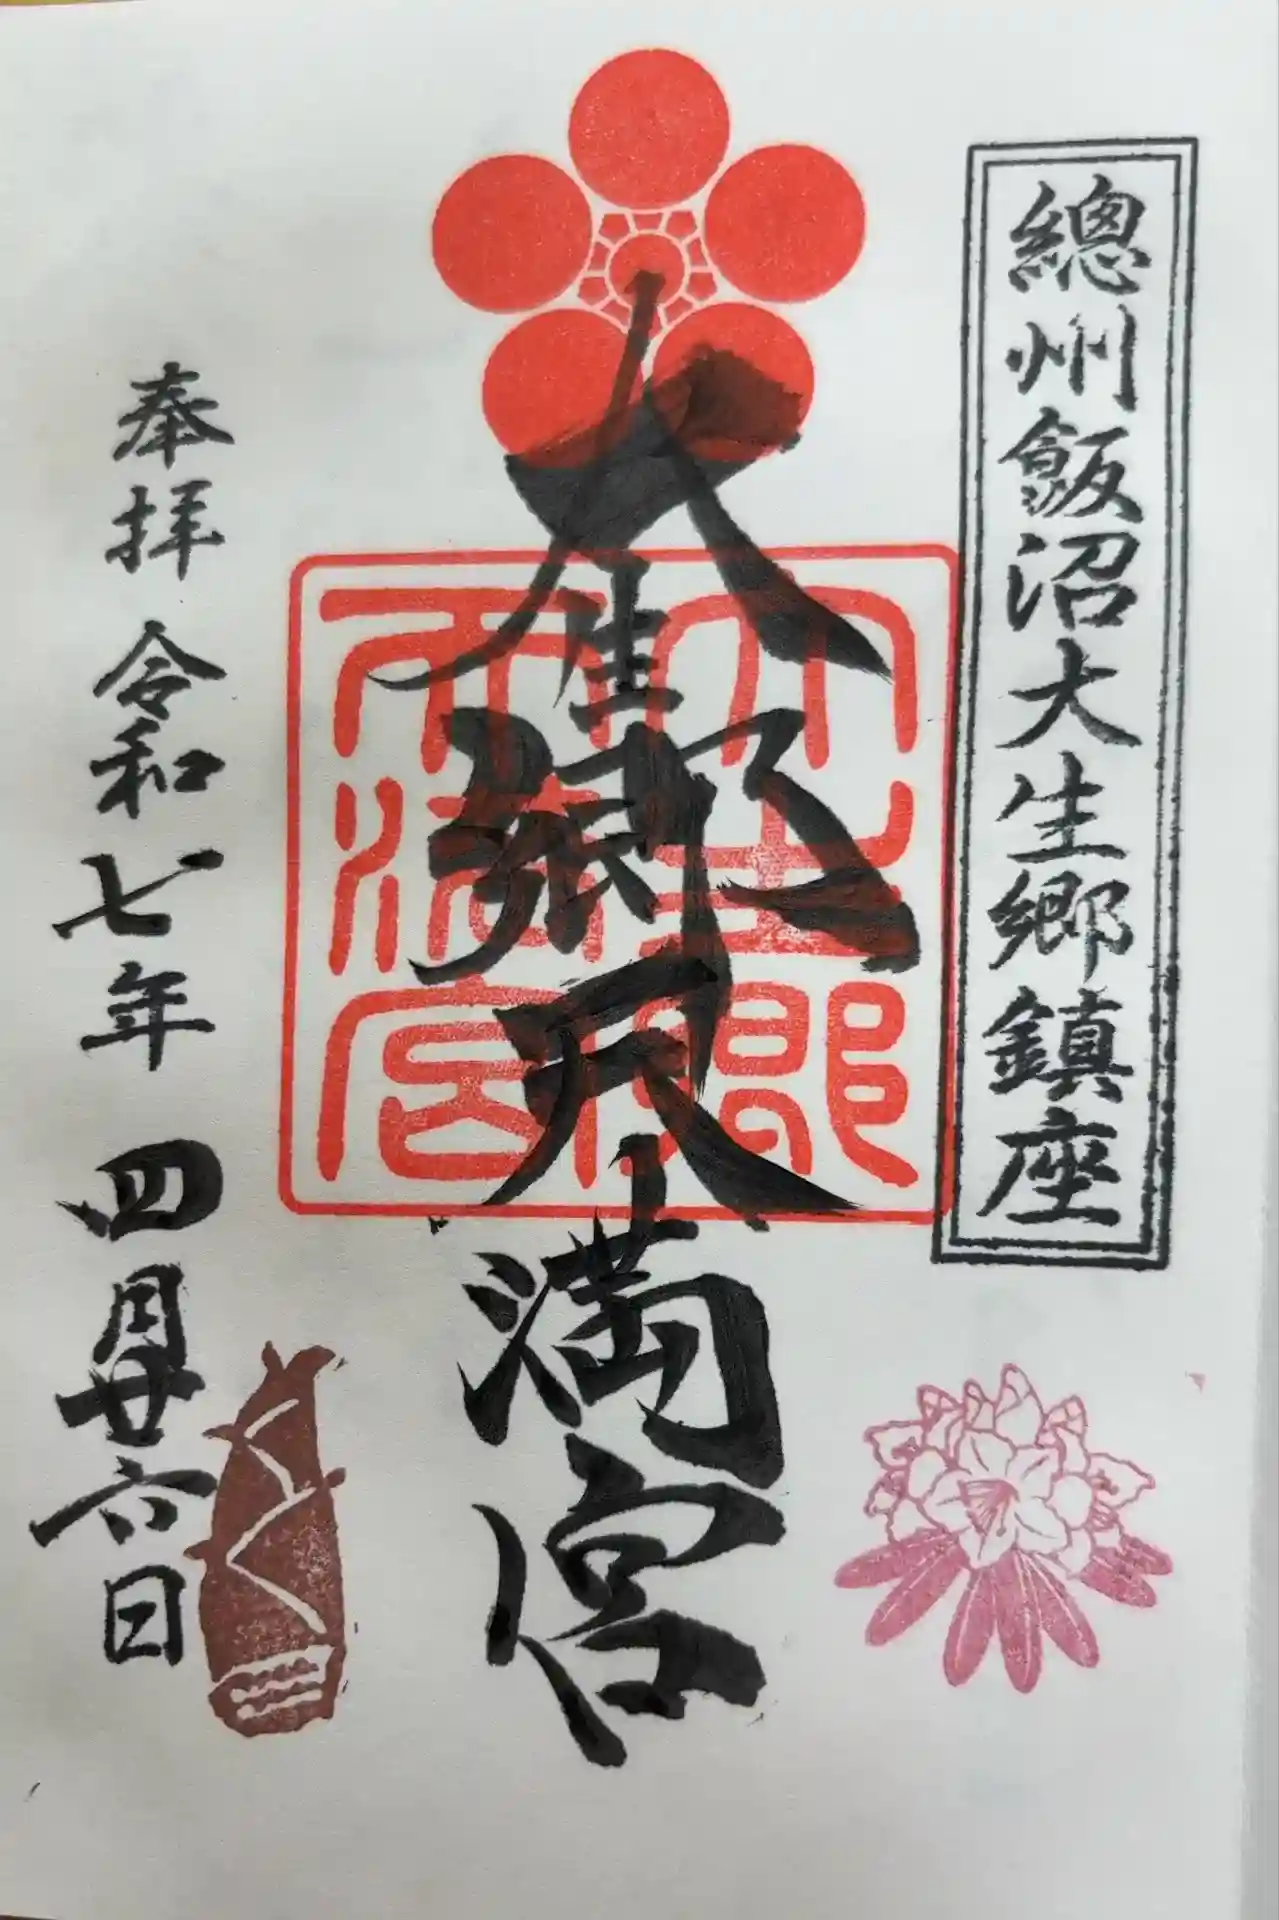 總州飯沼大生郷鎮座
大生郷天満宮
大生郷
天満宮
奉拝 令和七年 四月廿六日